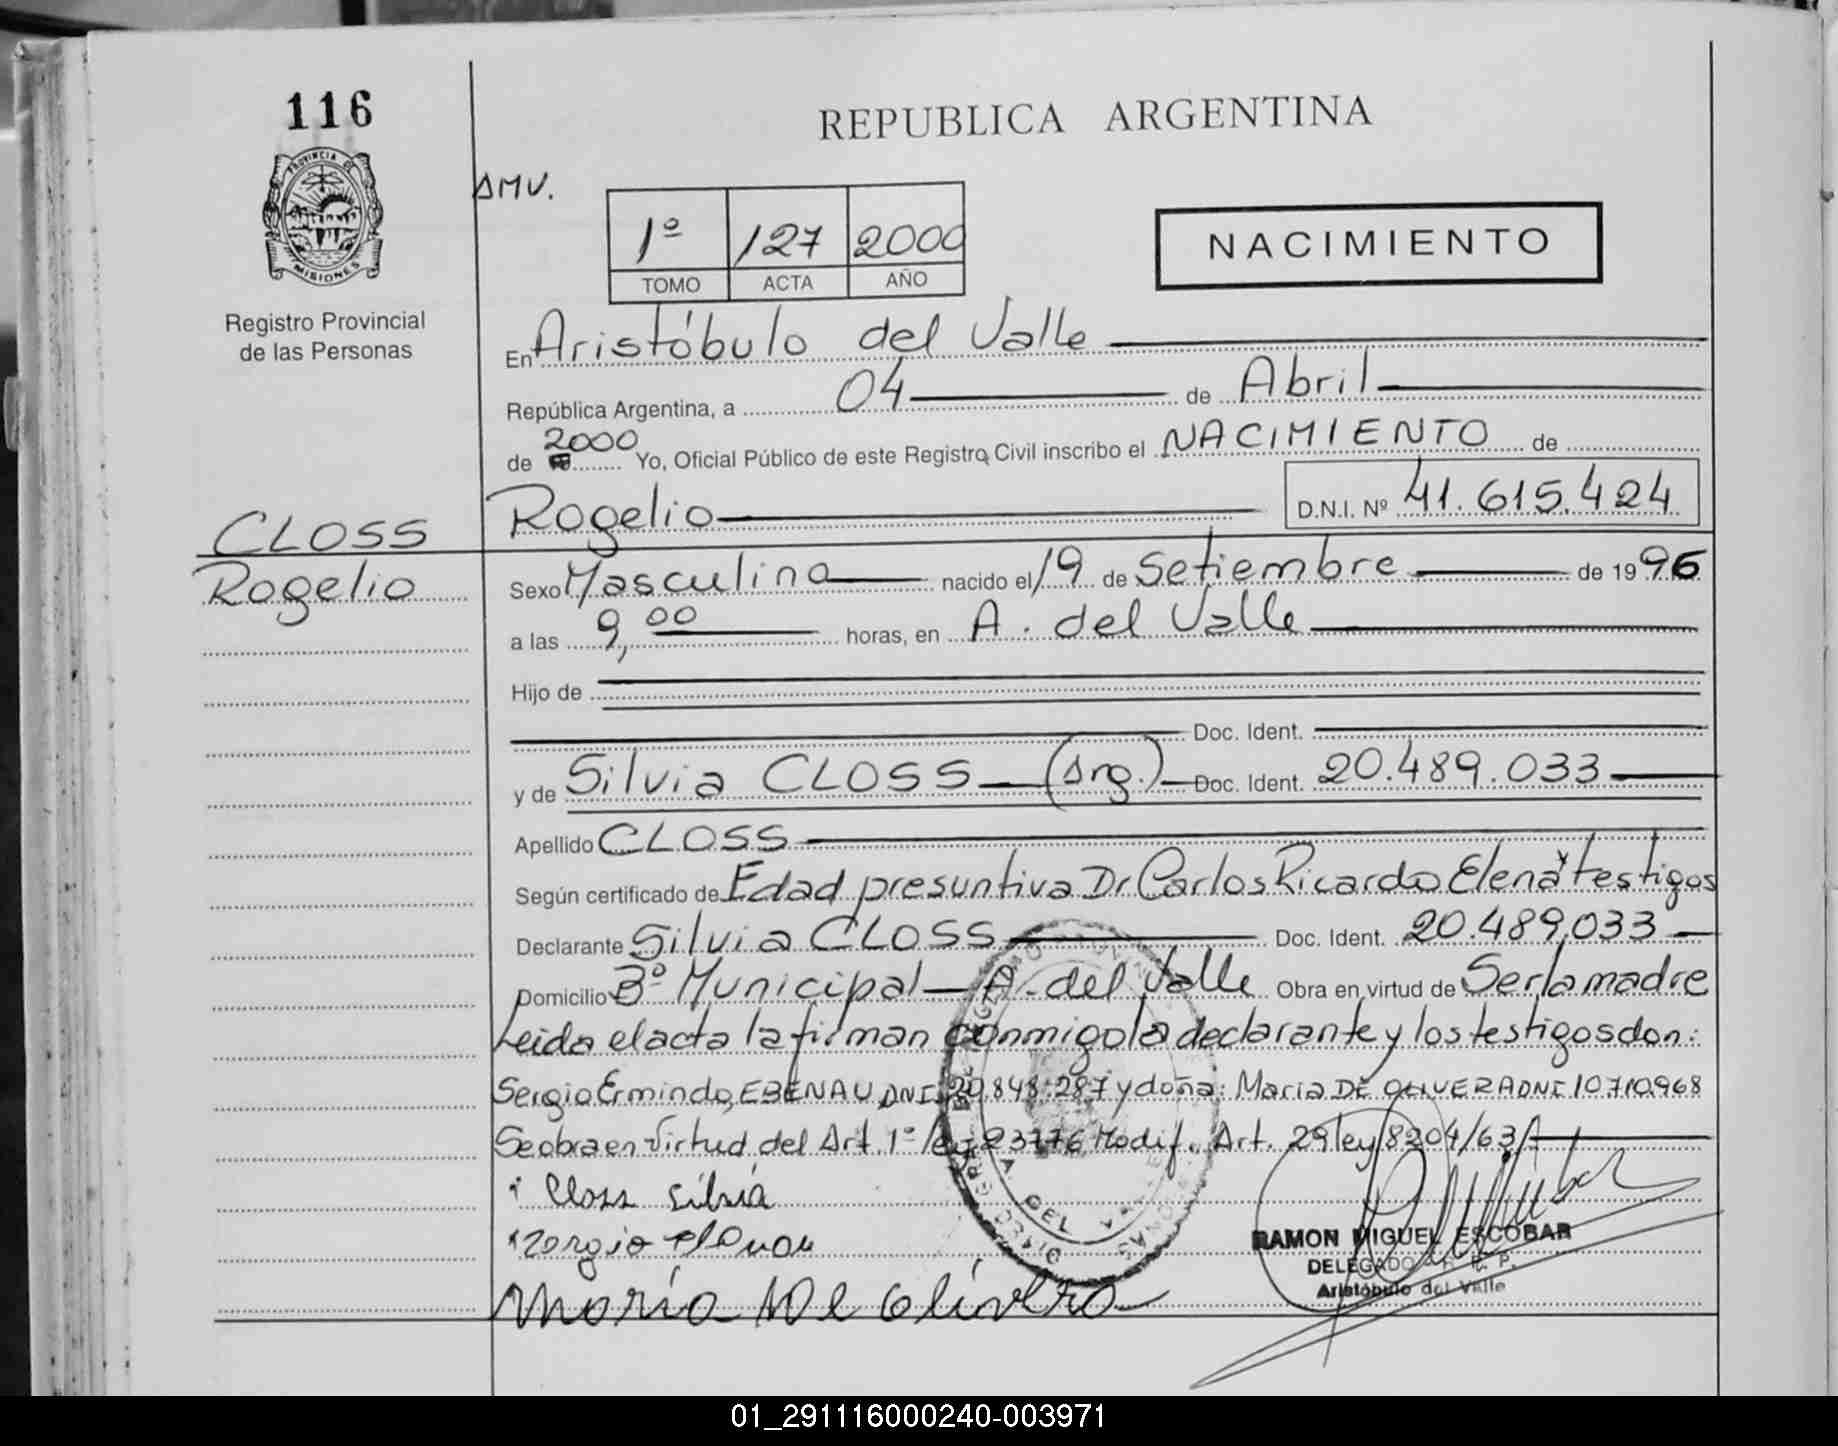 116
REPUBLICA ARGENTINA
PROVINCIA DE
MISIONES
AMV.
1º 127 2000
TOMO ACTA AÑO
NACIMIENTO
Registro Provincial
de las Personas
En Aristóbulo del Valle
República Argentina, a 04 de Abril
de 2000 Yo, Oficial Público de este Registro Civil inscribo el NACIMIENTO de
Rogelio D.N.I. Nº 41.615.424
CLOSS
Rogelio
Sexo Masculino nacido el 19 de Setiembre de 1996
a las 9,00 horas, en A. del Valle
Hijo de
Doc. Ident.
y de Silvia CLOSS (Arg.) Doc. Ident. 20.489.033
Apellido CLOSS
Según certificado de Edad presuntiva Dr Carlos Ricardo Elena y testigos
Declarante Silvia CLOSS Doc. Ident. 20.489.033
Domicilio Bº Municipal - A. del Valle Obra en virtud de Ser la madre
Leida el acta la firman conmigo la declarante y los testigos don:
Sergio Ermindo, EBENAU DNI: 20.848.287 y doña: Maria DE OLIVERA DNI 10.710.968
Se obra en Virtud del Art. 1º ley 23776 Modif. Art. 29 ley 8204/63
Closs Silvia
Maria De Olivera
RAMON MIGUEL ESCOBAR
DELEGADO R. P. P.
Aristóbulo del Valle
A. DEL VALLE
01_291116000240-003971